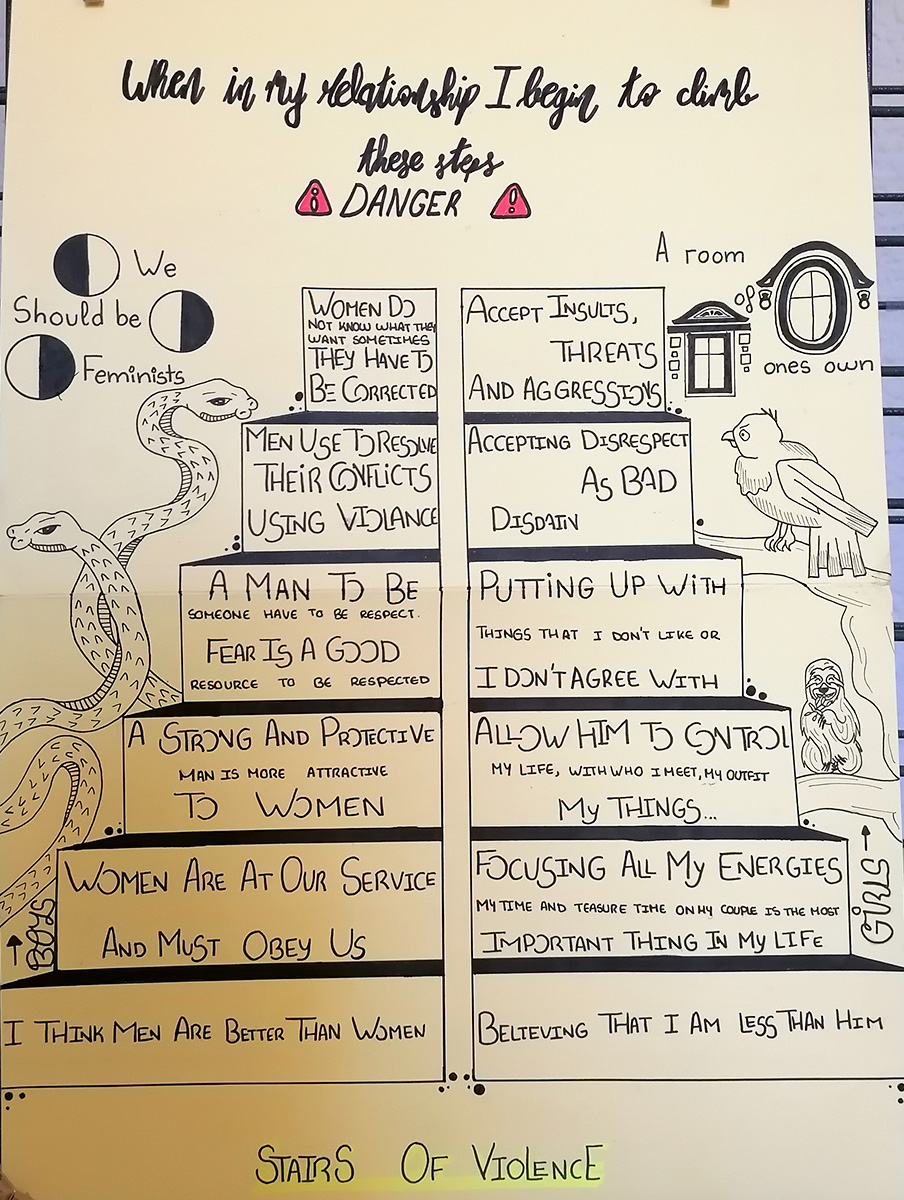 When in my relationship I begin to climb
these steps
DANGER
We
Should be
Feminists
A room
of
ones own
WOMEN DO
NOT KNOW WHAT THEY
WANT SOMETIMES
THEY HAVE TO
BE CORRECTED
MEN USE TO RESOLVE
THEIR CONFLICTS
USING VIOLANCE
A MAN TO BE
SOMEONE HAVE TO BE RESPECT.
FEAR IS A GOOD
RESOURCE TO BE RESPECTED
A STRONG AND PROTECTIVE
MAN IS MORE ATTRACTIVE
TO WOMEN
WOMEN ARE AT OUR SERVICE
AND MUST OBEY US
I THINK MEN ARE BETTER THAN WOMEN
BOYS
ACCEPT INSULTS,
THREATS
AND AGGRESSIONS
ACCEPTING DISRESPECT
AS BAD
DISDAIN
PUTTING UP WITH
THINGS THAT I DON'T LIKE OR
I DON'T AGREE WITH
ALLOW HIM TO CONTROL
MY LIFE, WITH WHO I MEET, MY OUTFIT
MY THINGS...
FOCUSING ALL MY ENERGIES
MY TIME AND TEASURE TIME ON MY COUPLE IS THE MOST
IMPORTANT THING IN MY LIFE
BELIEVING THAT I AM LESS THAN HIM
GIRLS
STAIRS OF VIOLENCE